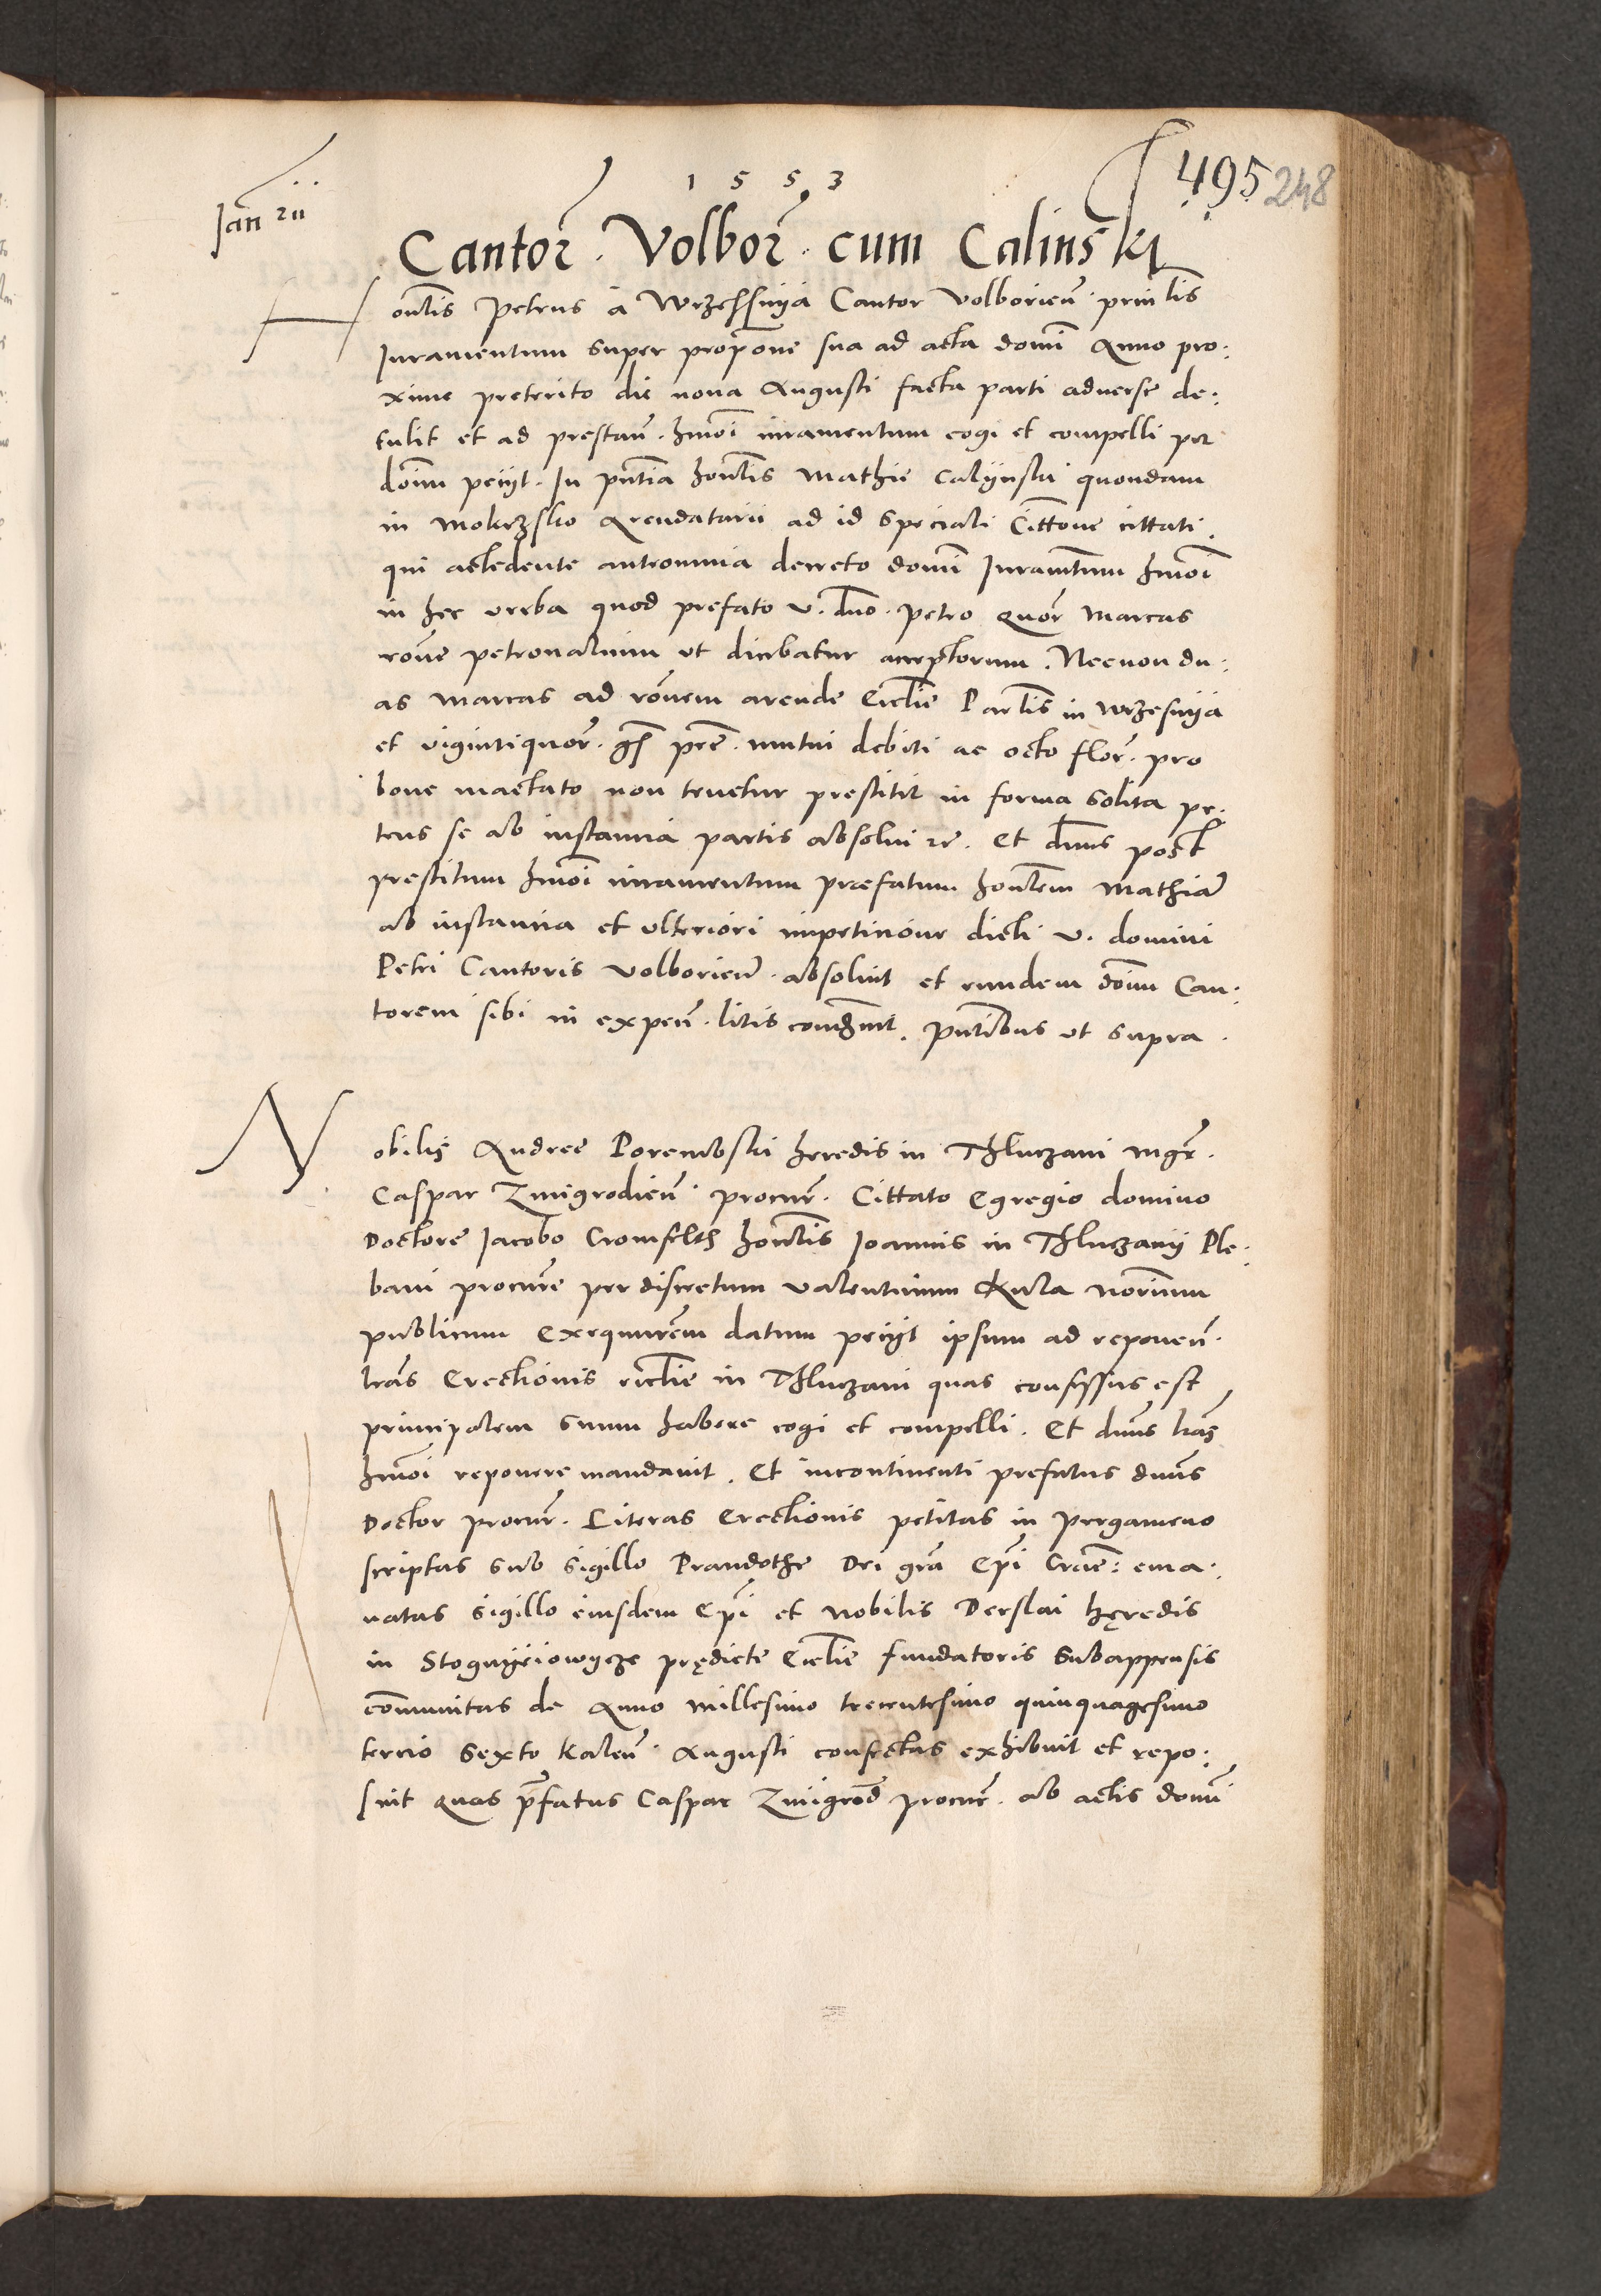 1 5 5 3
495 248
Jan̄ 2ii
Cantor̄. Volbor̄. cum Calinski
Hon̄lis Petrus à Wrzessnyia Cantor Volborien̄. prin̄lis
Juramentum super prop̄one sua ad acta domi Anno pro:
xime preterito die nona Augusti facta parti aduerse de:
tulit et ad prestan̄. hm̄oi iuramentum cogi et compelli per
dom̄ petijt. In pn̄tia hon̄lis Mathie Calijnski quondam
in Mokrzsko Arendatarii ad id speciali Citt̄one cittati.
qui accedente autronimia decreto domi Juramn̄tum hm̄oi
in hec verba quod prefato v. dn̄o. Petro quor̄ marcas
ro̅ne petronalium vt dicebatur acceptorum. Necnon du:
as marcas ad ro̅nem arende Ecclīe Parlis in Wrzesnyia
et vigintiquor̄. gs̄ prē. mutui debiti ac octo flor̄. pro
boue mactato non tenetur prestitit in forma solita pe:
tens se ab instantia partis absolui 2c̄. Et dn̄us post
prestitum hm̄oi iuramentum praefatum hon̄lem Mathiā
ab instantia et vlteriori impetitione dicti v. domini
Petri Cantoris Volborien̄. absoluit et eundem dom̄ Can:
torem sibi in expen̄. litis condem̄it. pn̄tibus vt supra.
Nobilis Andree Porembski heredis in Thluczani mgr̄.
Caspar Zmigrodien̄. procur̄. Cittato Egregio domino
Doctore Jacobo Cromfelth hon̄lis Joannis in Thluczanij Ple:
bani procur̄e per discretum valentinum Kula notr̄ium
publicum exequut̄rem datum petijt ipsum ad reponen̄.
lr̄as Erectionis ecclīe in Thluczani quas confessus est
principalem suum habere cogi et compelli. Et dn̄us lr̄as
hm̄oi reponere mandauit. Et incontinenti prefatus dn̄us
Doctor procur̄. Literas Erectionis petitas in pergameno
scriptas sub sigillo Prandothe Dei grā Ep̄i Crac̄: ema:
natas sigillo eiusdem Ep̄i et nobilis Derslai hęredis
in Stognyeiowycze prędicte Ecclīe fundatoris subappensis
com̄unitas de Anno millesimo trecentesimo quinquagesimo
tercio sexto kalen̄. Augusti confectas exhibuit et repo:
suit quas p̄fatus Caspar Zmigrod̄ procur̄. ab actis domi